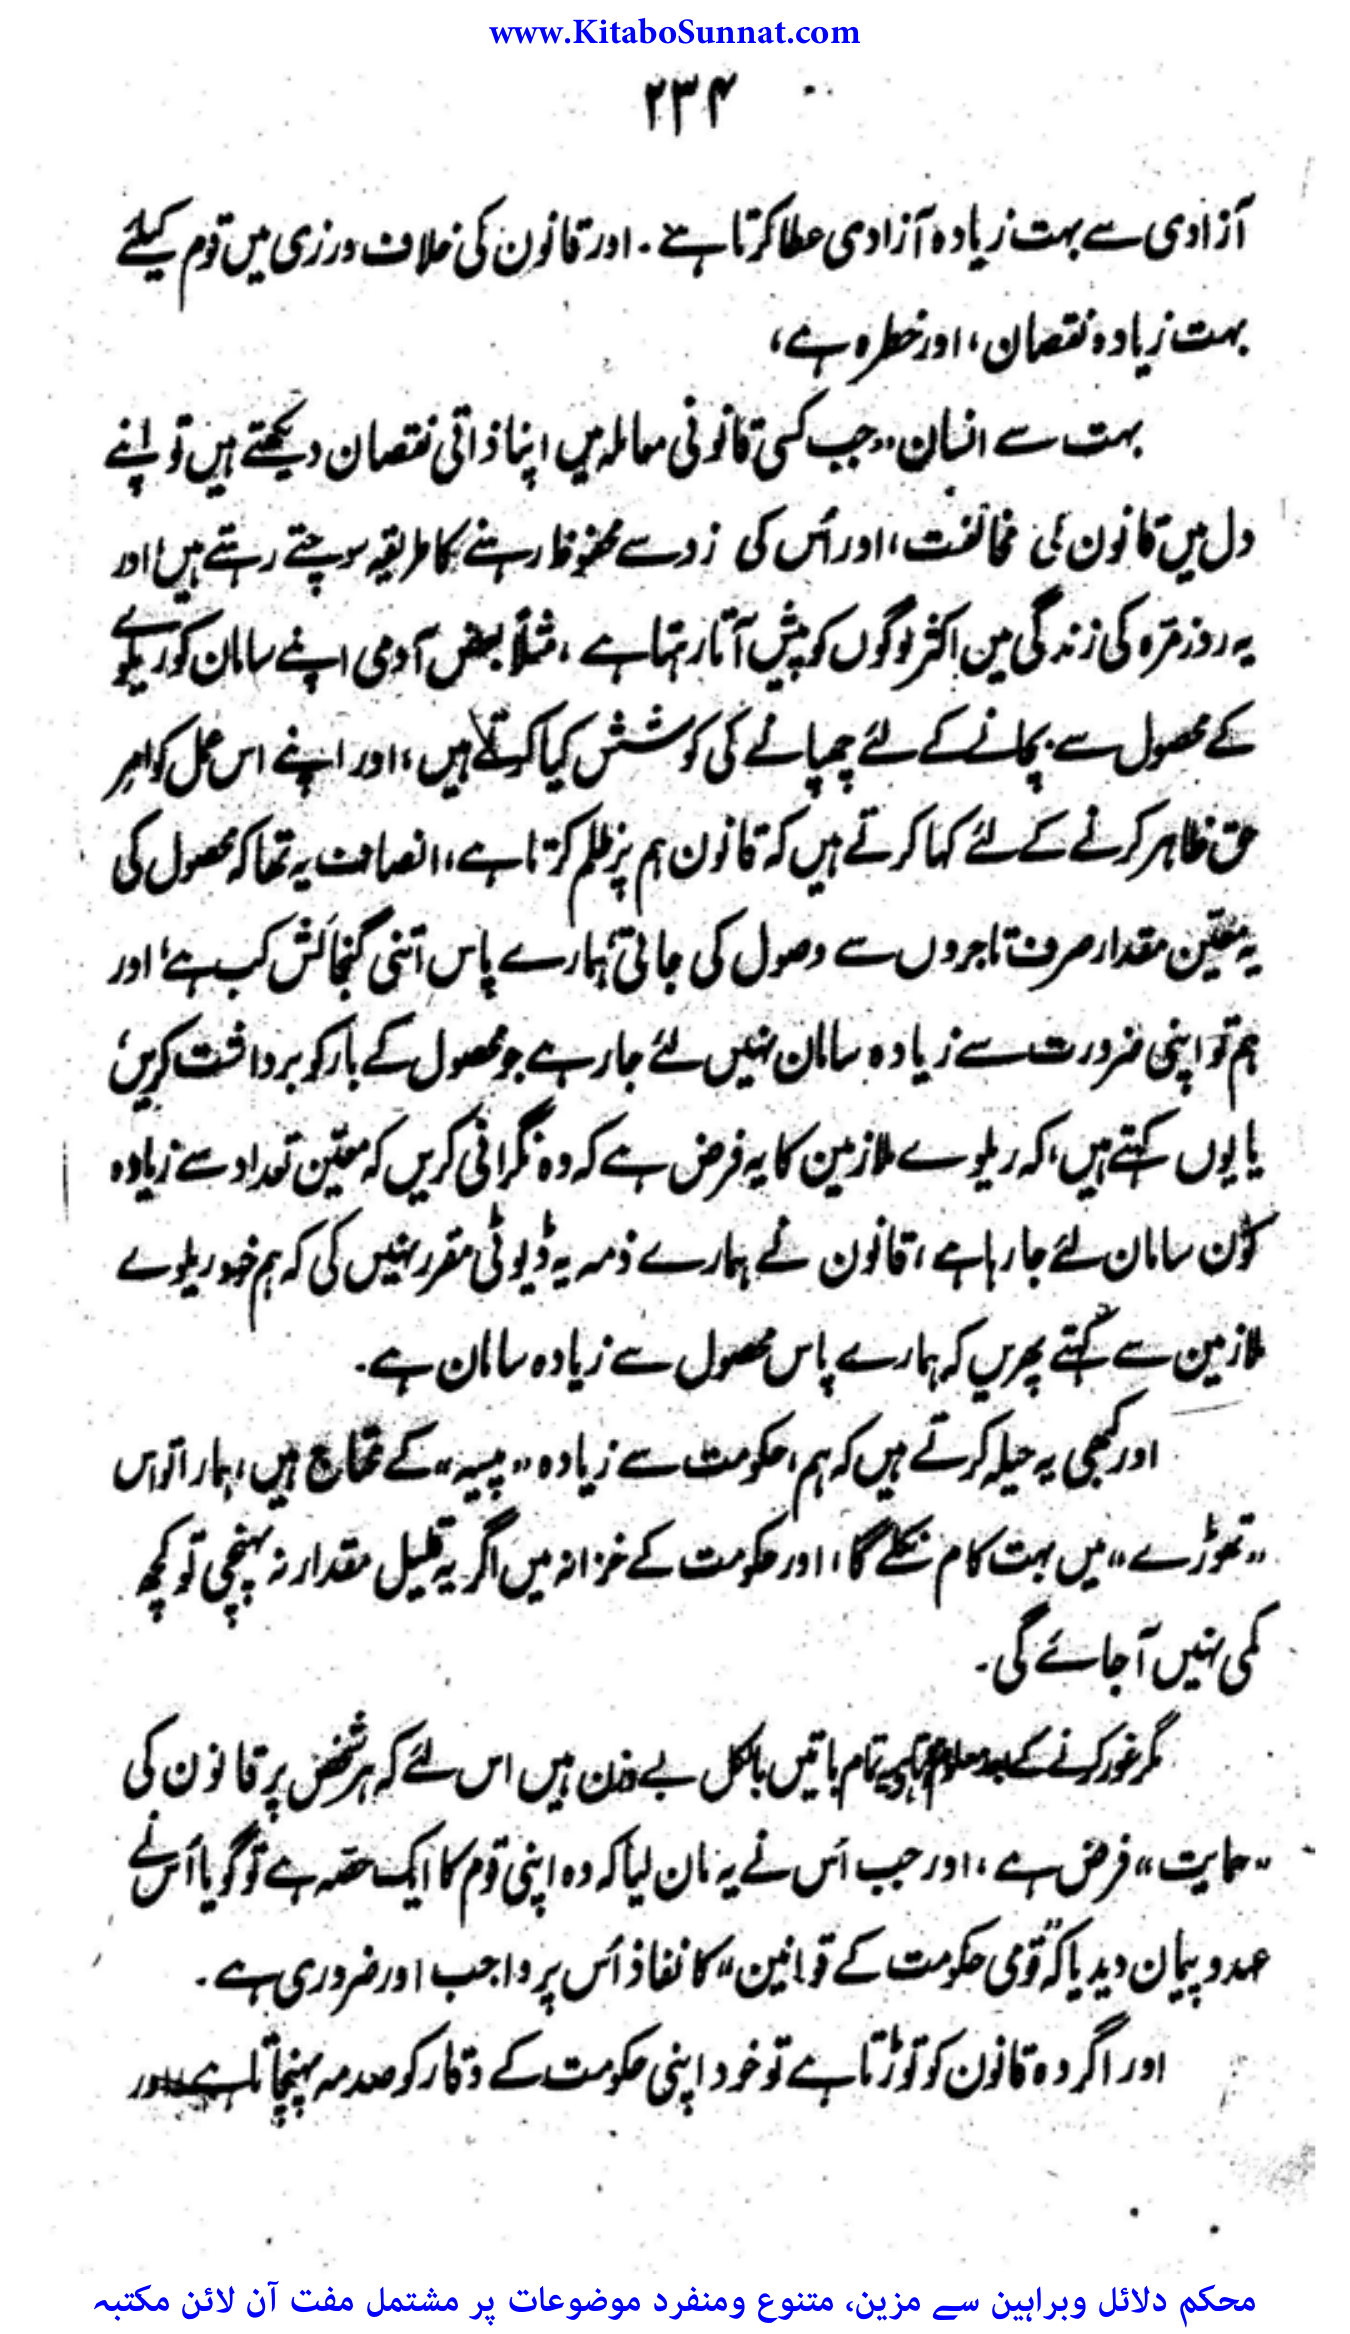 www.KitaboSunnat.com
۲۳۴
آزادی سے بہت زیادہ آزادی عطا کرتا ہے۔ اور قانون کی خلاف ورزی میں قوم کیلئے
بہت زیادہ نقصان، اور خطرہ ہے،
بہت سے انسان، جب کسی قانونی معاملہ میں اپنا ذاتی نقصان دیکھتے ہیں تو اپنے
دل میں قانون کی مخالفت، اور اُس کی زد سے محفوظ رہنے کا طریقہ سوچتے رہتے ہیں، اور
یہ روز مرہ کی زندگی میں اکثر لوگوں کو پیش آتا رہتا ہے، مثلاً بعض آدمی اپنے سامان کو ریلوے
کے محصول سے بچانے کے لئے چھپانے کی کوشش کیا کرتے ہیں، اور اپنے اس عمل کو امر
حق ظاہر کرنے کے لئے کہا کرتے ہیں کہ قانون ہم پر ظلم کرتا ہے، انصاف یہ تھا کہ محصول کی
یہ معیّن مقدار صرف تاجروں سے وصول کی جاتی، ہمارے پاس اتنی گنجائش کب ہے، اور
ہم تو اپنی ضرورت سے زیادہ سامان نہیں لئے جا رہے جو محصول کے بار کو برداشت کریں،
یا یوں کہتے ہیں، کہ ریلوے ملازمین کا یہ فرض ہے کہ وہ نگرانی کریں کہ معیّن تعداد سے زیادہ
کون سامان لئے جا رہا ہے، قانون نے ہمارے ذمہ یہ ڈیوٹی مقرر نہیں کی کہ ہم خود ریلوے
ملازمین سے کہتے پھریں کہ ہمارے پاس محصول سے زیادہ سامان ہے۔
اور کبھی یہ حیلہ کرتے ہیں کہ ہم، حکومت سے زیادہ “پیسہ” کے محتاج ہیں، ہمارا تو اس
“تھوڑے” میں بہت کام نکلے گا، اور حکومت کے خزانہ میں اگر یہ قلیل مقدار نہ پہنچی تو کچھ
کمی نہیں آ جائے گی۔
مگر غور کرنے کے بعد معلوم ہوتا ہے یہ تمام باتیں بالکل بے وزن ہیں اس لئے کہ ہر شخص پر قانون کی
“حمایت” فرض ہے، اور جب اُس نے یہ مان لیا کہ وہ اپنی قوم کا ایک حصّہ ہے تو گویا اُس نے
عہد و پیمان دیدیا کہ “قومی حکومت کے قوانین” کا نفاذ اُس پر واجب اور ضروری ہے۔
اور اگر وہ قانون کو توڑتا ہے تو خود اپنی حکومت کے وقار کو صدمہ پہنچاتا ہے اور
محکم دلائل وبراہین سے مزین، متنوع ومنفرد موضوعات پر مشتمل مفت آن لائن مکتبہ